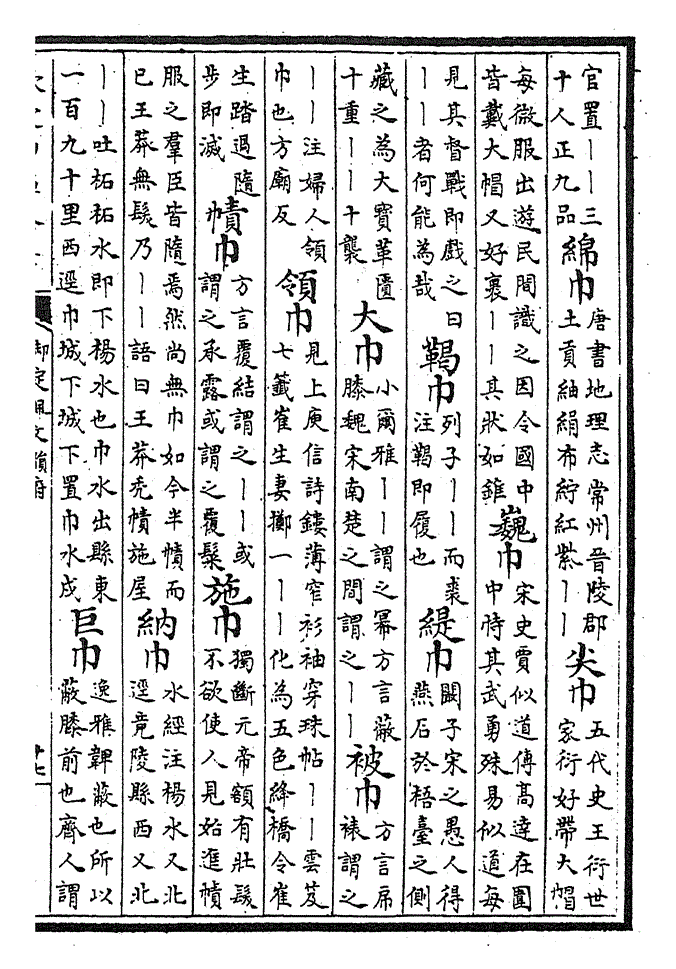 官置丨丨三
十人正九品
綿巾
唐書地理志常州晉陵郡
土貢紬絹布紵紅紫丨丨
尖巾
五代史王衍世
家衍好帶大帽
每微服出遊民間識之因令國中
皆戴大帽又好裹丨丨其狀如錐
巍巾
宋史賈似道傳髙達在圍
中時其武勇殊易似道每
見其督戰即戲之曰
丨丨者何能為哉
鞨巾
列子丨丨而裘
注鞨即履也
緹巾
闞子宋之愚人得
燕石於梧臺之側
藏之為大寶革匱
十重丨丨十襲
大巾
小爾雅丨丨謂之冪方言蔽
膝魏宋南楚之間謂之丨丨
被巾
方言帍
裱謂之
丨丨注婦人領
巾也方廟反
領巾
見上庾信詩鏤薄窄衫袖穿珠帖丨丨雲芨
七籤崔生妻擲一丨丨化為五色絳橋令崔
生踏過隨
步即滅
幘巾
方言覆結謂之丨丨或
謂之承露或謂之覆髤
施巾
獨斷元帝額有壯髮
不欲使人見始進幘
服之羣臣皆隨焉然尚無巾如今半幘而
已王莽無髮乃丨丨語曰王莽秃幘施屋
納巾
水經注楊水又北
逕竟陵縣西又北
丨丨吐柘柘水即下楊水也巾水出縣東
一百九十里西逕巾城下城下置巾水戍
巨巾
逸雅韠蔽也所以
蔽膝前也齊人謂
御定佩文韻府